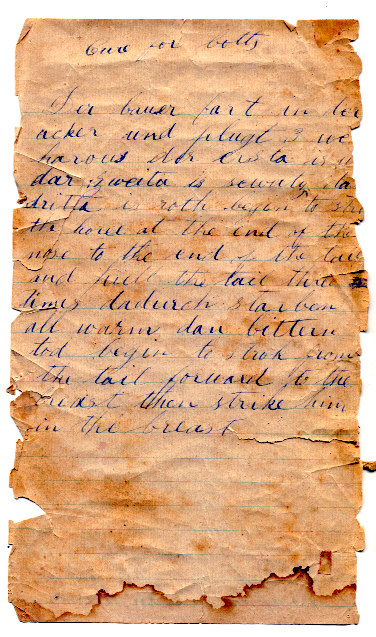 Cure for botts
Dir bauer fart in der
acker und plugt 3 we
harous dor ersta is w
dar zweita is sewult da
dritta is roth begin to str
th horse at the end of the
nose to the end of the tail
and pull the tail three
times dadurch starben
all warm dan bittern
tod begin to strok from
the tail forward to the
breast then strike him
in the breast